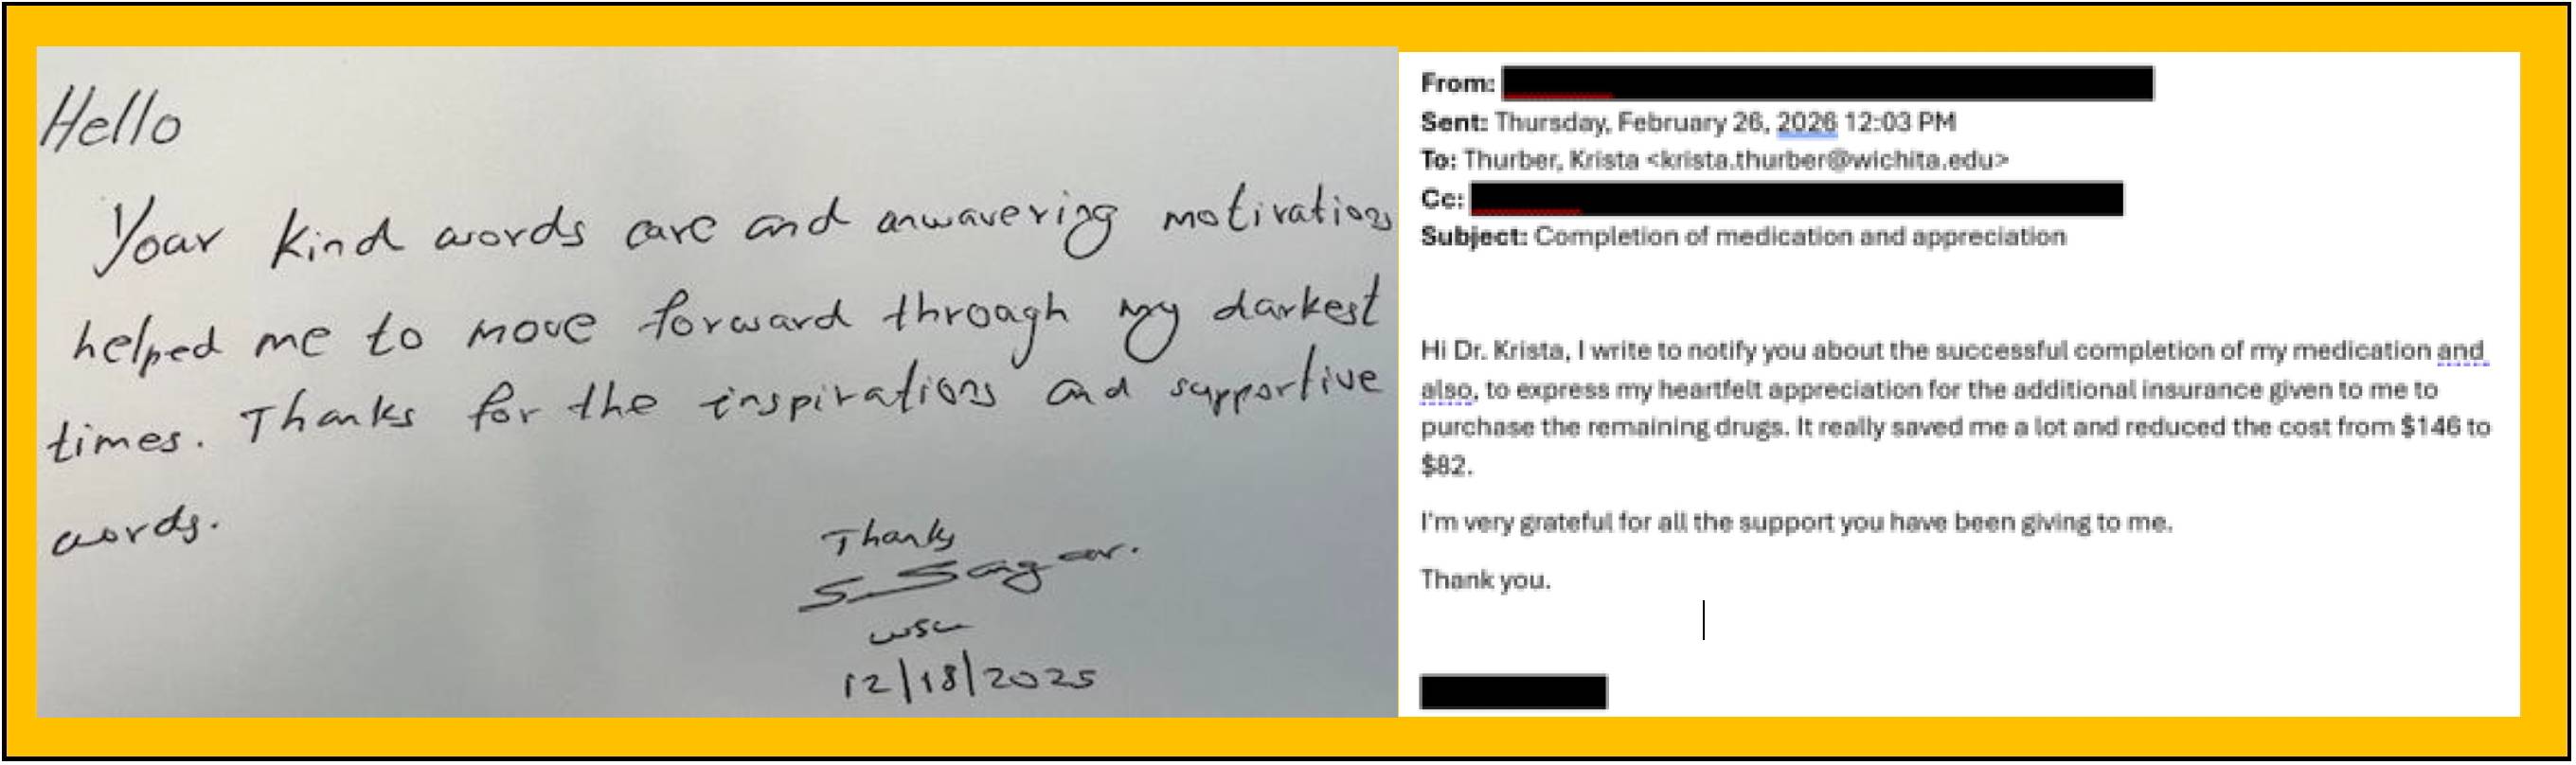 Hello
Your kind words care and unwavering motivations
helped me to move forward through my darkest
times. Thanks for the inspirations and supportive
words.
Thanks
S Sagar.
WSU
12/18/2025
From:
Sent: Thursday, February 26, 2026 12:03 PM
To: Thurber, Krista <krista.thurber@wichita.edu>
Cc:
Subject: Completion of medication and appreciation
Hi Dr. Krista, I write to notify you about the successful completion of my medication and
also, to express my heartfelt appreciation for the additional insurance given to me to
purchase the remaining drugs. It really saved me a lot and reduced the cost from $146 to
$82.
I'm very grateful for all the support you have been giving to me.
Thank you.